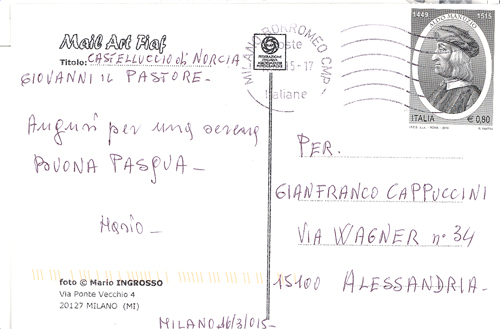 Mail Art Fiaf
Titolo: CASTELLUCCIO di NORCIA
GIOVANNI IL PASTORE -
Auguri per una serena
BUONA PASQUA -
Mario -
foto © Mario INGROSSO
Via Ponte Vecchio 4
20127 MILANO (MI)
MILANO 16/3/015 -
MILANO BORROMEO CMP
Poste
15-17
Italiane
1449
ALDO MANUZIO
1515
ITALIA
€ 0,80
PER.
GIANFRANCO CAPPUCCINI
VIA WAGNER n° 34
15100 ALESSANDRIA -